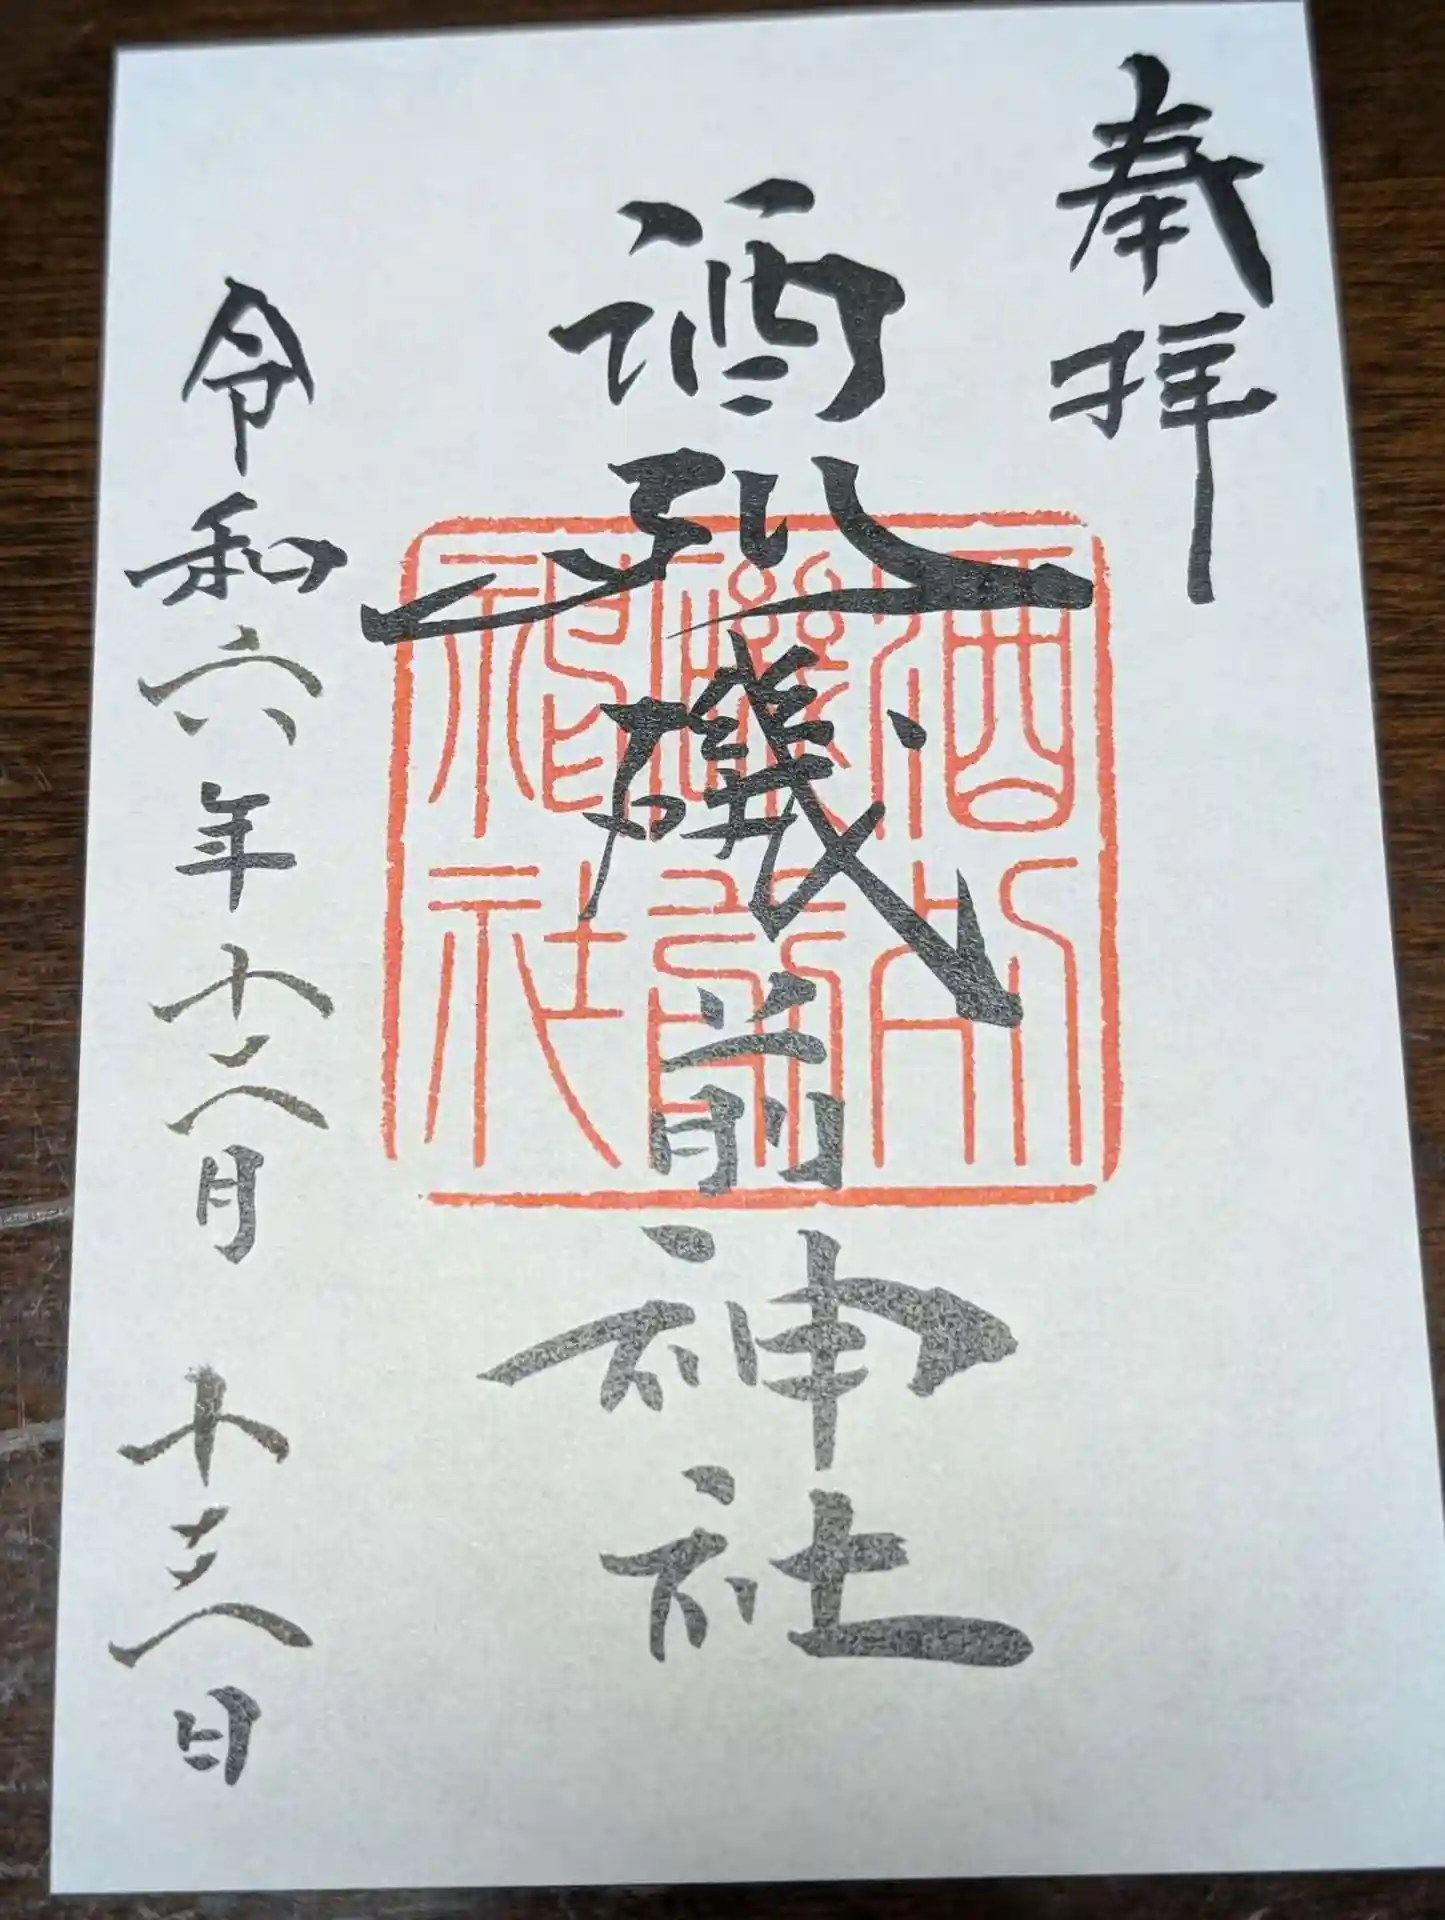 奉拝
酒列磯前神社
令和六年十二月十三日
酒列
磯前
神社